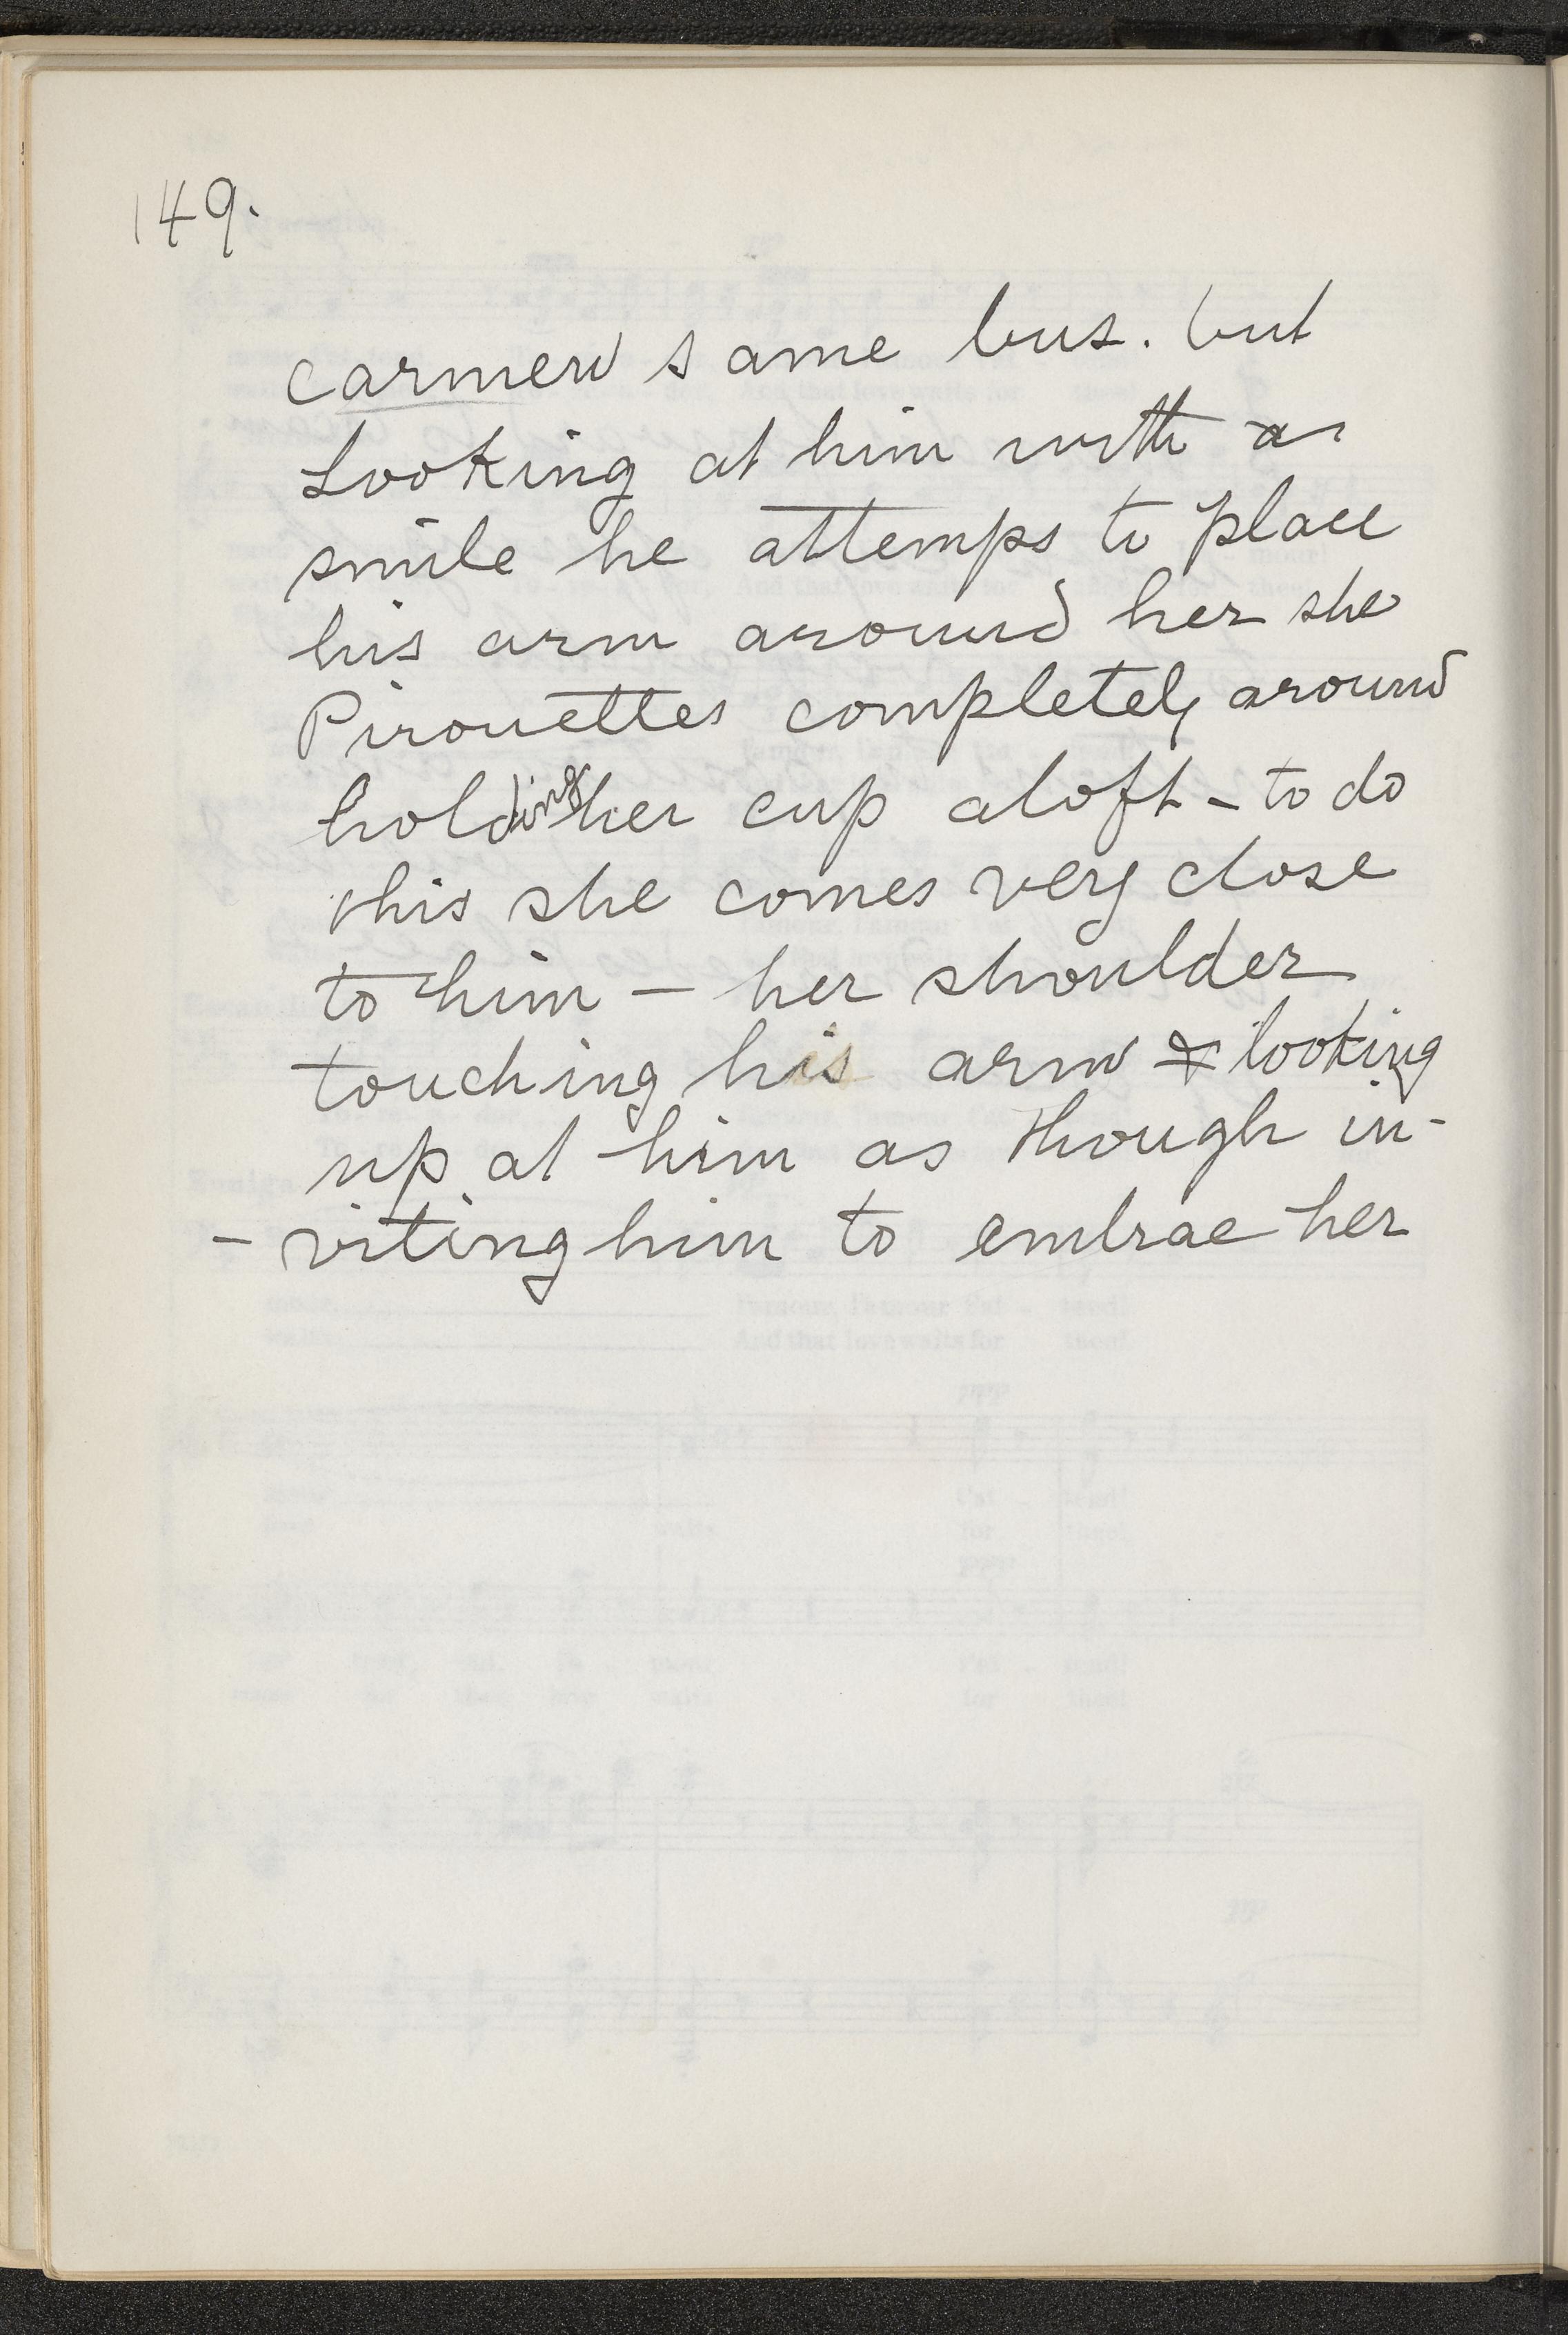 149.
carmen same bus. but
Looking at him with a
smile he attemps to place
his arm around her she
Pirouettes completely around
holding her cup aloft - to do
this she comes very close
to him - her shoulder
touching his arm & looking
up at him as though in-
- viting him to embrae her